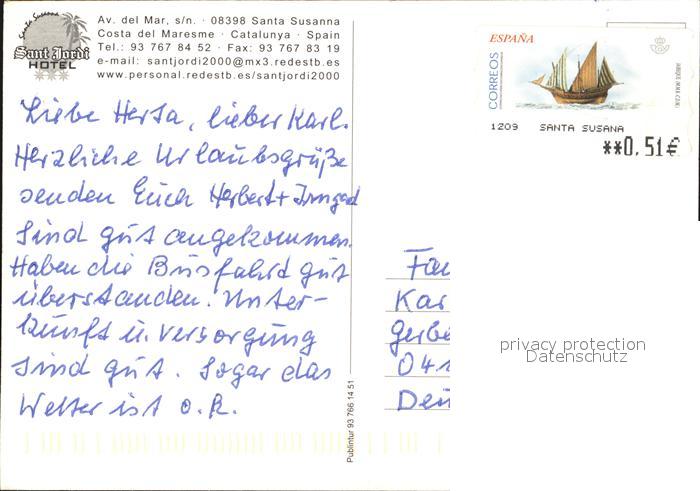 Santa Susanna
Sant Jordi
HOTEL
Av. del Mar, s/n. · 08398 Santa Susanna
Costa del Maresme · Catalunya · Spain
Tel.: 93 767 84 52 · Fax: 93 767 83 19
e-mail: santjordi2000@mx3.redestb.es
www.personal.redestb.es/santjordi2000
Liebe Herta, lieber Karl.
Herzliche Urlaubsgrüße
senden Euch Herbert + Irmgard
Sind gut angekommen.
Haben die Busfahrt gut
überstanden. Unter-
kunft u. Versorgung
sind gut. Sogar das
Wetter ist o.K.
Publintur 93 766 14 51
ESPAÑA
CORREOS
1209 SANTA SUSANA
**0,51€
Fam
Kar
Gerbe
041
Deu
privacy protection
Datenschutz